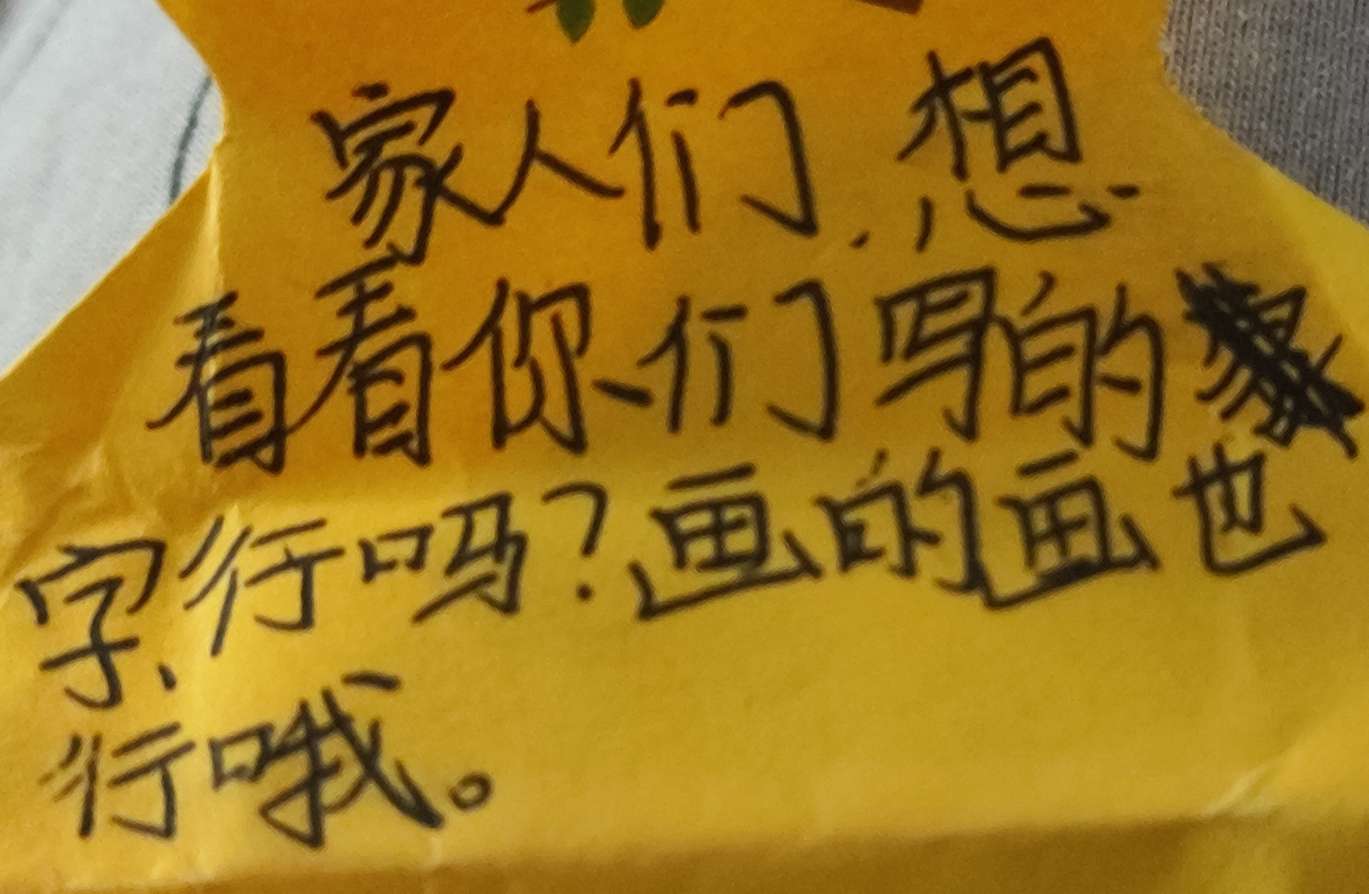 家人们,想
看看你们写的
字,行吗?画的画也
行哦。